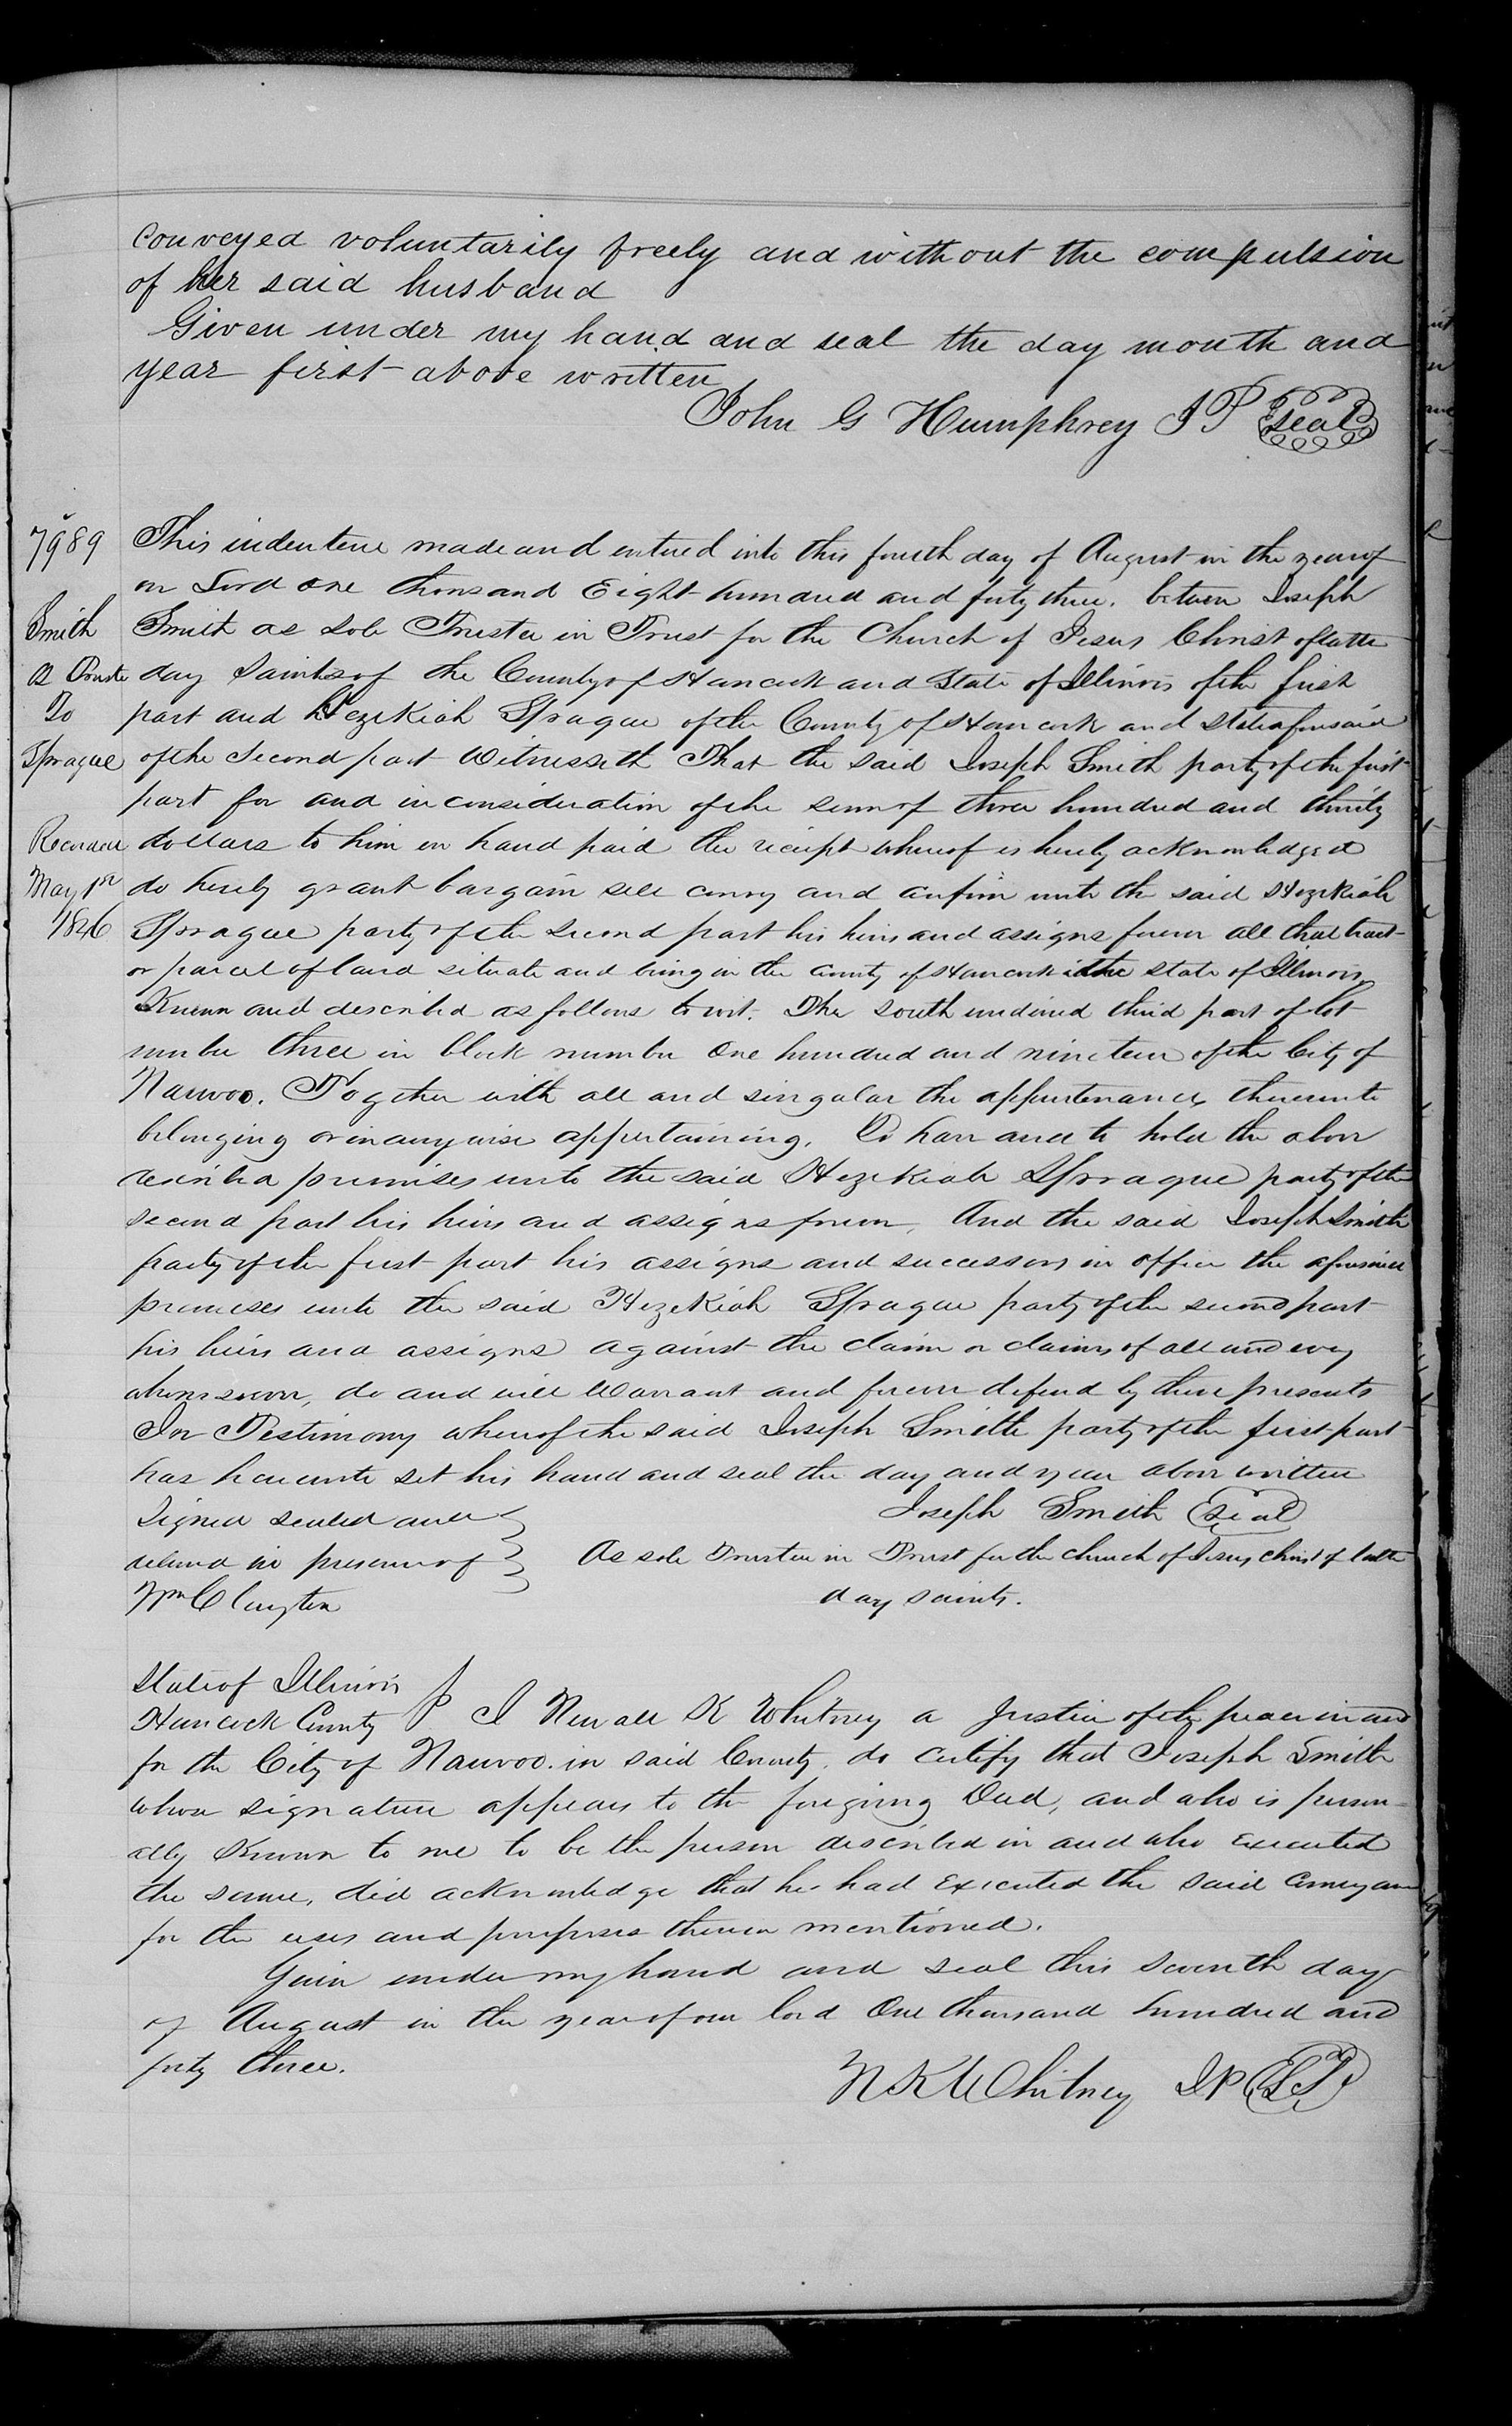 conveyed voluntarily freely and without the compulsion
of her said husband
Given under my hand and seal the day month and
year first above written
John G Humphrey J P Seal
7989
Smith
as Truste
To
Sprague
Recorded
May 1st
1846
This indenture made and entered into this fourth day of August in the year of
our Lord one thousand Eight hundred and forty three. between Joseph
Smith as sole Trustee in Trust for the Church of Jesus Christ of latter
day Saints of the County of Hancock and State of Illinois of the first
part and Hezekiah Sprague of the County of Hancock and State aforesaid
of the Second part Witnesseth That the said Joseph Smith party of the first
part for and in consideration of the sum of three hundred and thirty
dollars to him in hand paid the receipt whereof is hereby acknowledged
do hereby grant bargain sell convey and confirm unto the said Hezekiah
Sprague party of the second part his heirs and assigns forever all that tract
or parcel of land situate and being in the County of Hancock the State of Illinois
Known and described as follows to wit. The South undivided third part of lot
number three in block number One hundred and nineteen of the City of
Nauvoo. Together with all and singular the appurtenances thereunto
belonging or in anywise appertaining. To have and to hold the above
described premises unto the said Hezekiah Sprague party of the
second part his heirs and assigns forever, And the said Joseph Smith
party of the first part his assigns and successors in office the aforesaid
premises unto the said Hezekiah Sprague party of the second part
his heirs and assigns against the claim or claims of all and every
whomsoever, do and will Warrant and forever defend by these presents
In Testimony whereof the said Joseph Smith party of the first part
has hereunto set his hand and seal the day and year above written
Signed sealed and
delivered in presence of
Wm Clayton
Joseph Smith Seal
As sole Trustee in Trust for the church of Jesus christ of latter
day saints.
State of Illinois
Hancock County I Newall K Whitney a Justice of the peace in and
for the City of Nauvoo. in said County, do certify that Joseph Smith
whose signature appears to the foregoing Deed, and who is person-
ally Known to me to be the person described in and who Executed
the same, did acknowledge that he had Executed the said Conveyance
for the uses and purposes therein mentioned.
Given under my hand and seal this seventh day
of August in the year of our lord One thousand hundred and
forty three.
N K Whitney J P